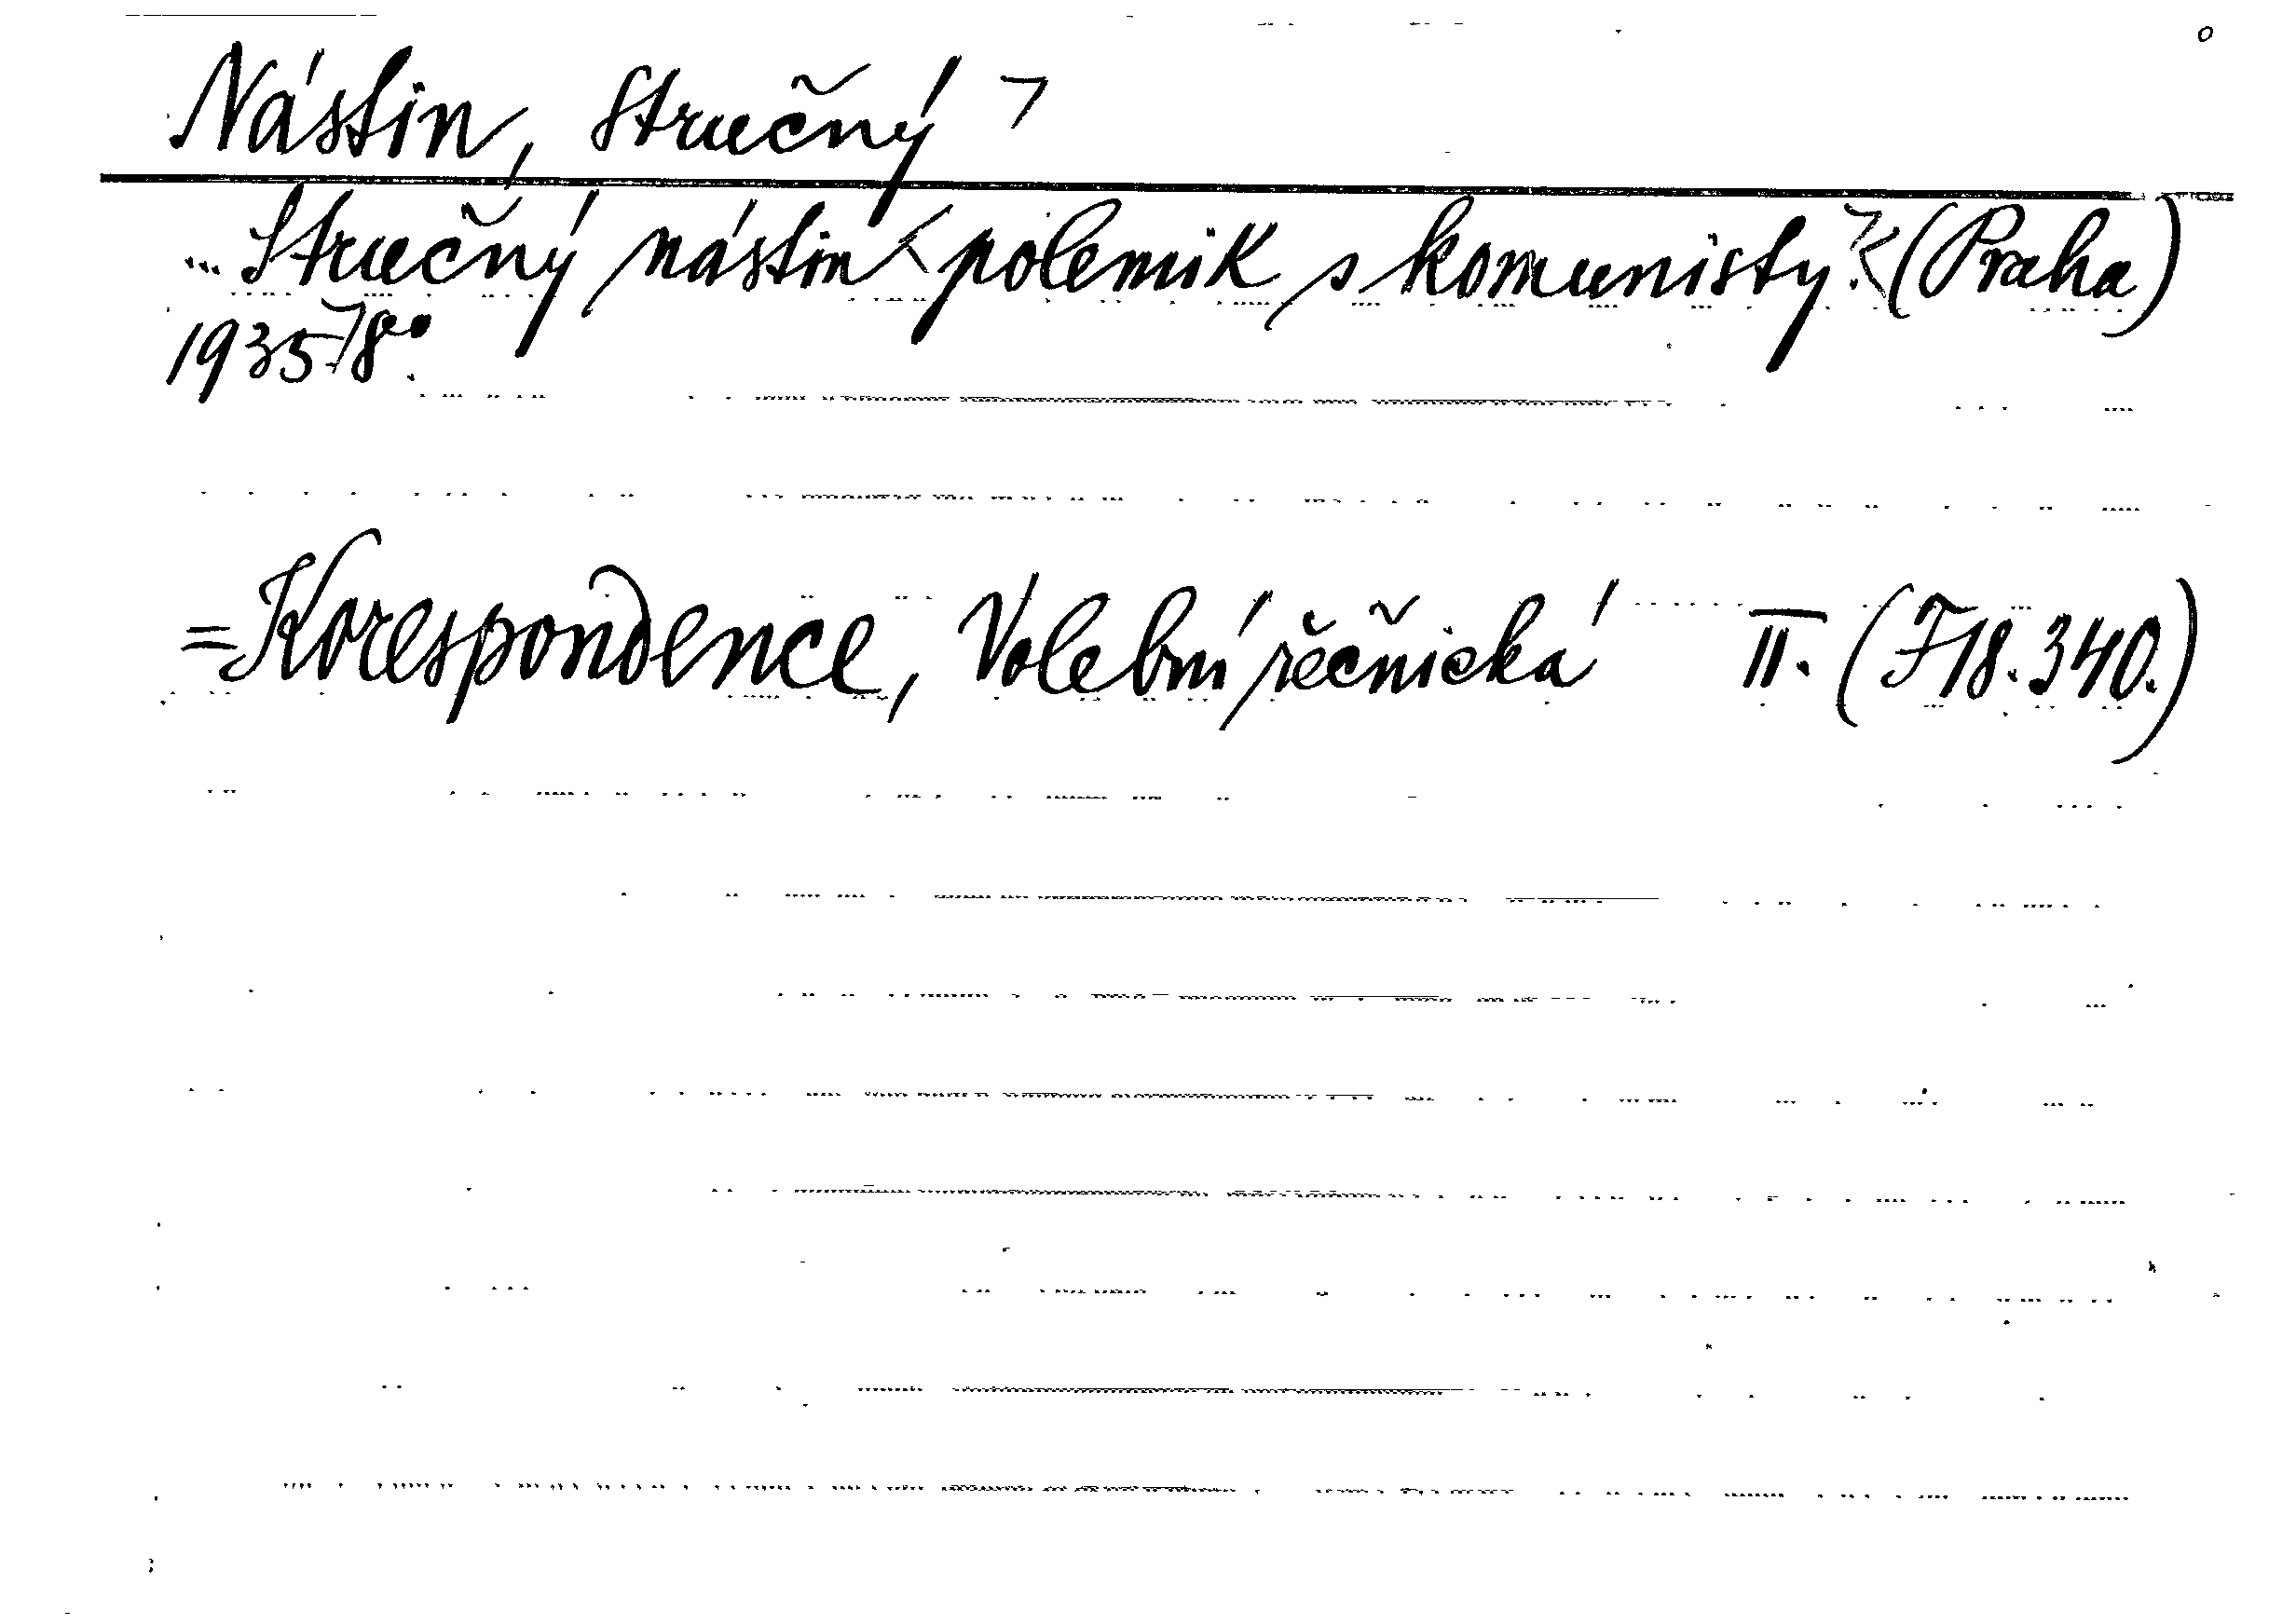 Nástin, Stručný >
... Stručný nástin < polemik s komunisty. >< (Praha)
1935 > 8°.
= Korespondence, Volební řečnická II. (F 18.340.)